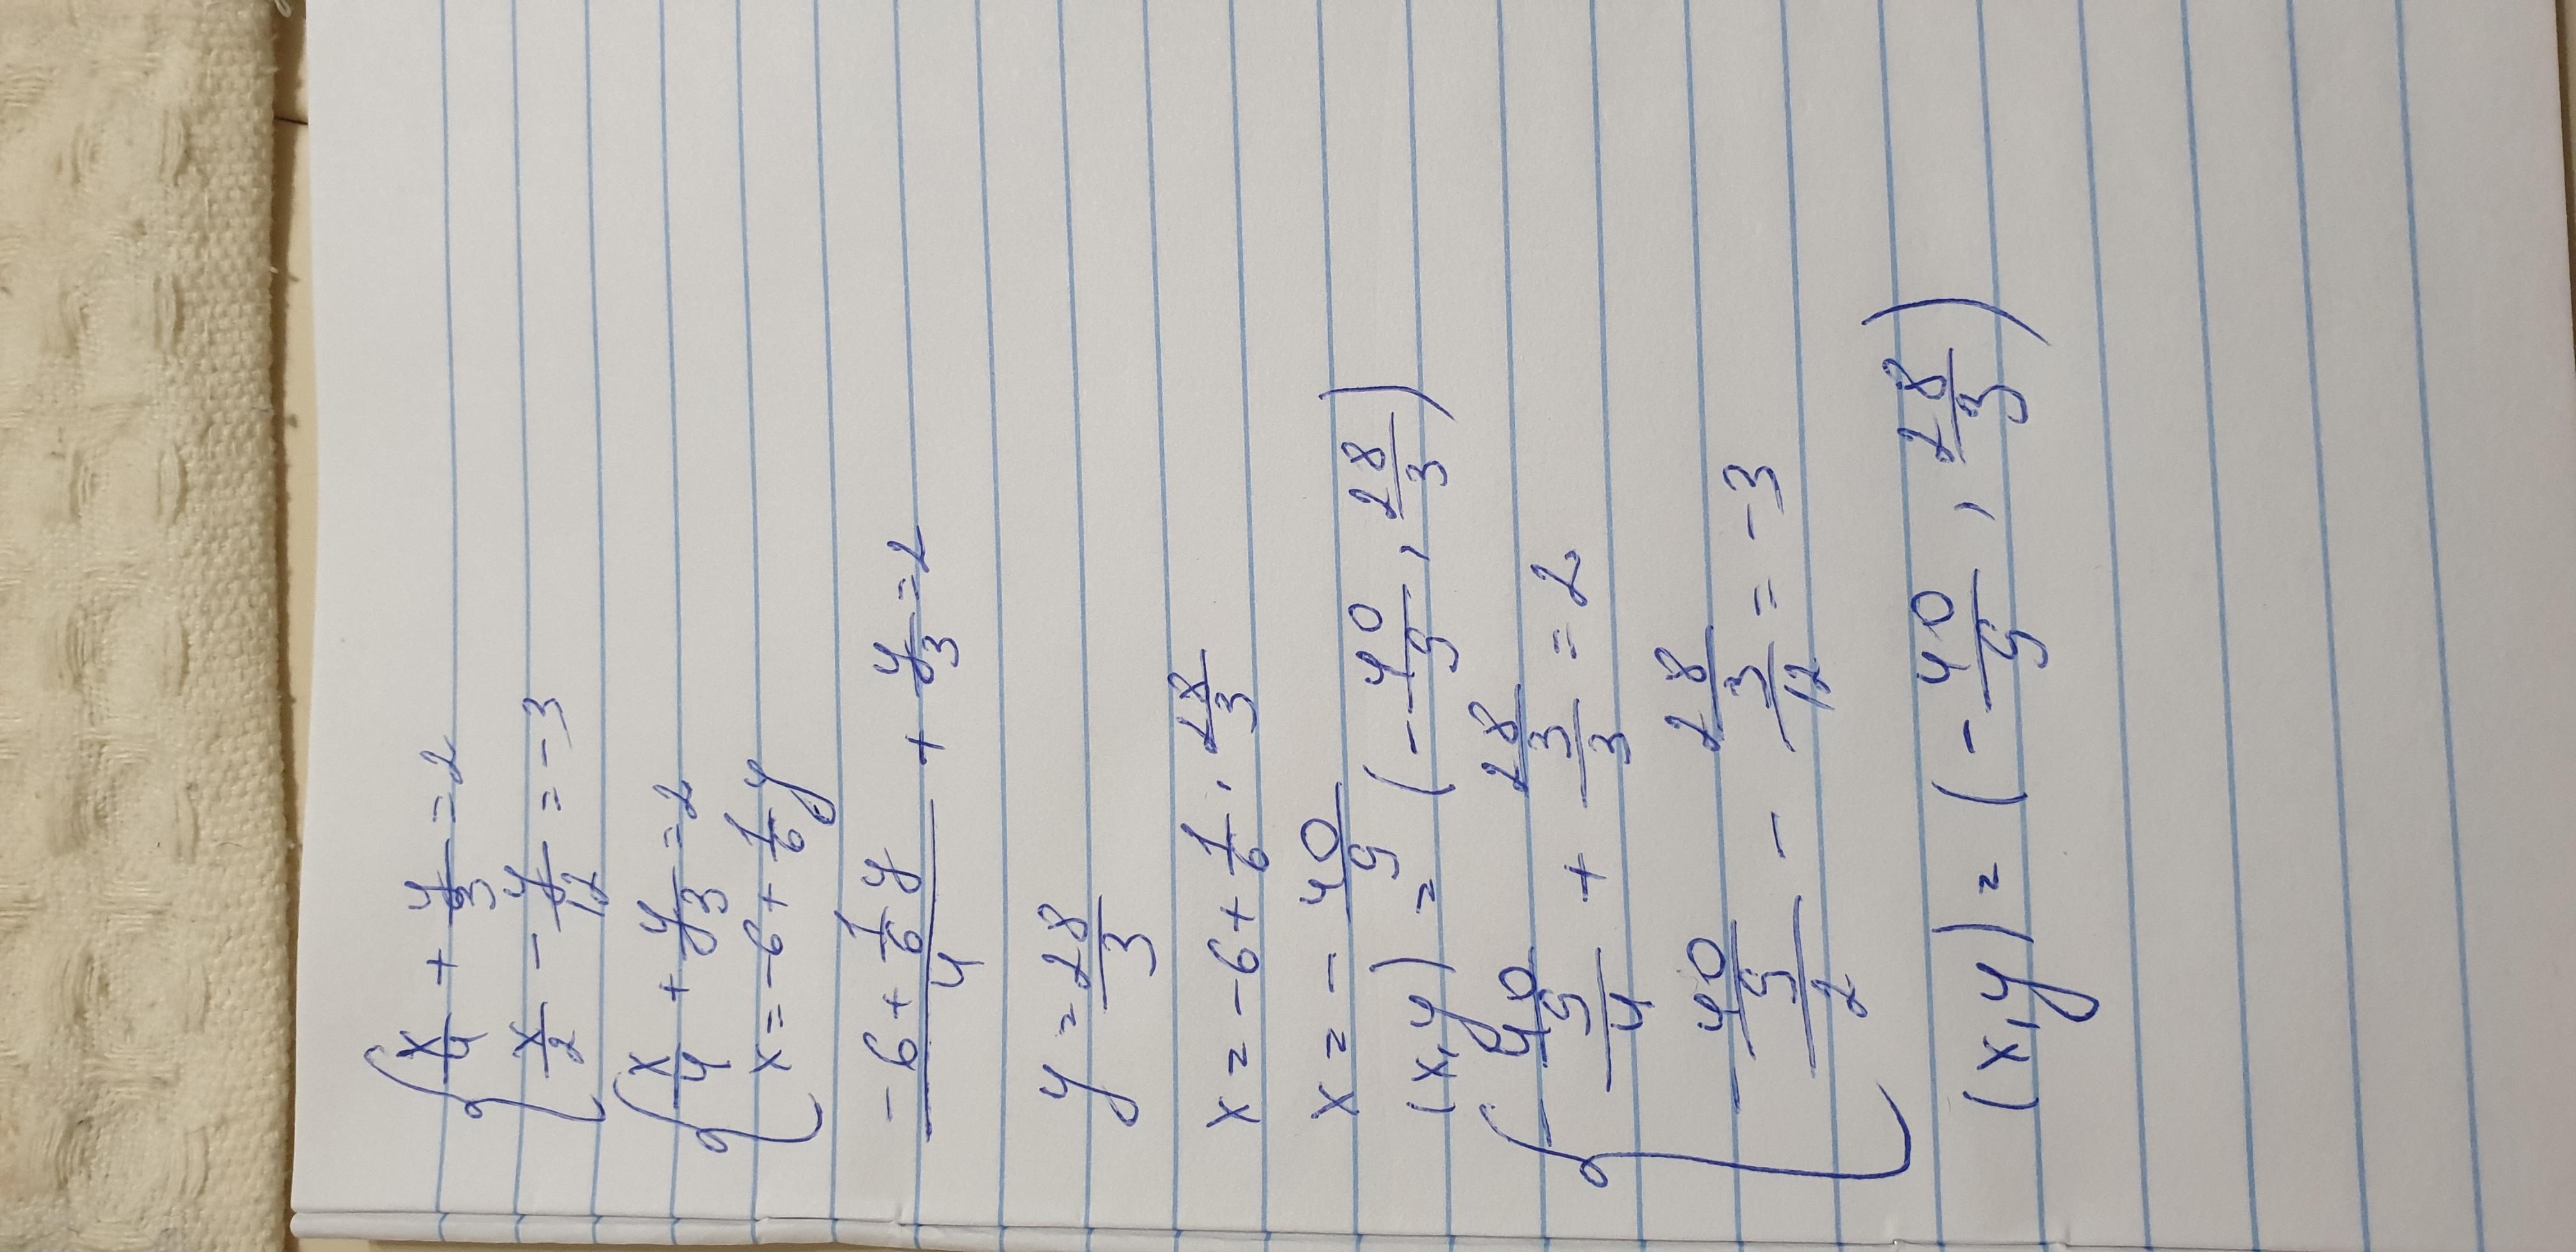 { x/4 + y/3 = 2
x/2 - y/12 = -3
{ x/4 + y/3 = 2
x = -6 + 1/6 y
(-6 + 1/6 y)/4 + y/3 = 2
y = 28/3
x = -6 + 1/6 · 28/3
x = - 40/9
(x,y) = (- 40/9 , 28/3)
{ - (40/9)/4 + (28/3)/3 = 2
- (40/9)/2 - (28/3)/12 = -3
(x,y) = (- 40/9 , 28/3)